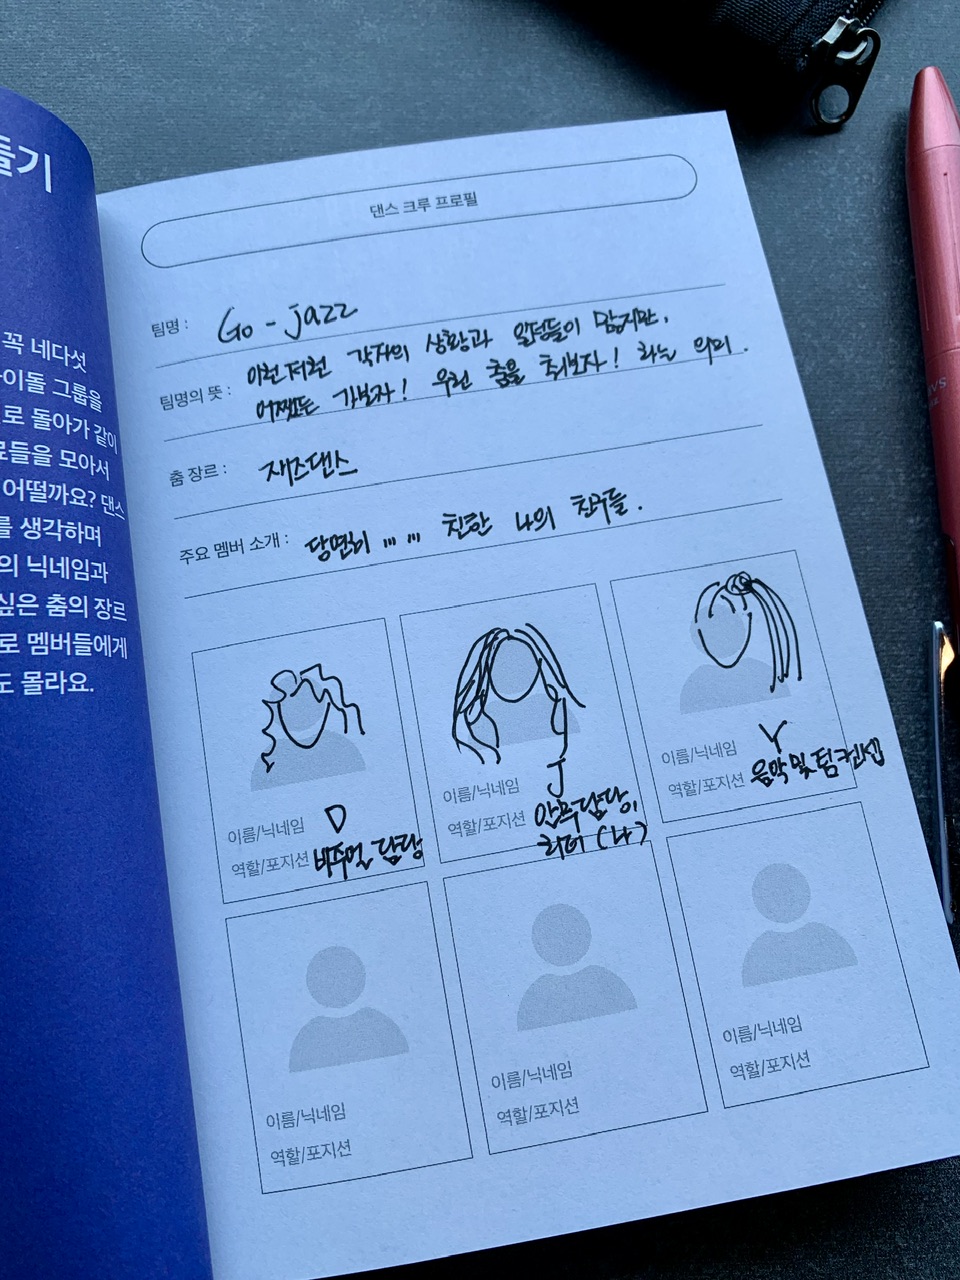 들기
꼭 네다섯
아이돌 그룹을
로 돌아가 같이
료들을 모아서
어떨까요? 댄스
를 생각하며
의 닉네임과
싶은 춤의 장르
로 멤버들에게
도 몰라요.
댄스 크루 프로필
팀명 : Go - jazz
팀명의 뜻 : 이런저런 각자의 상황과 일정들이 많지만,
어쨌든 가보자! 우린 춤을 춰보자! 하는 의미.
춤 장르 : 재즈댄스
주요 멤버 소개 : 당연히 ... ... 친한 나의 친구들.
이름/닉네임 D
역할/포지션 비주얼 담당
이름/닉네임 J
역할/포지션 안무담당,
리더 (나)
이름/닉네임 Y
역할/포지션 음악 및 팀
이름/닉네임
역할/포지션
이름/닉네임
역할/포지션
이름/닉네임
역할/포지션